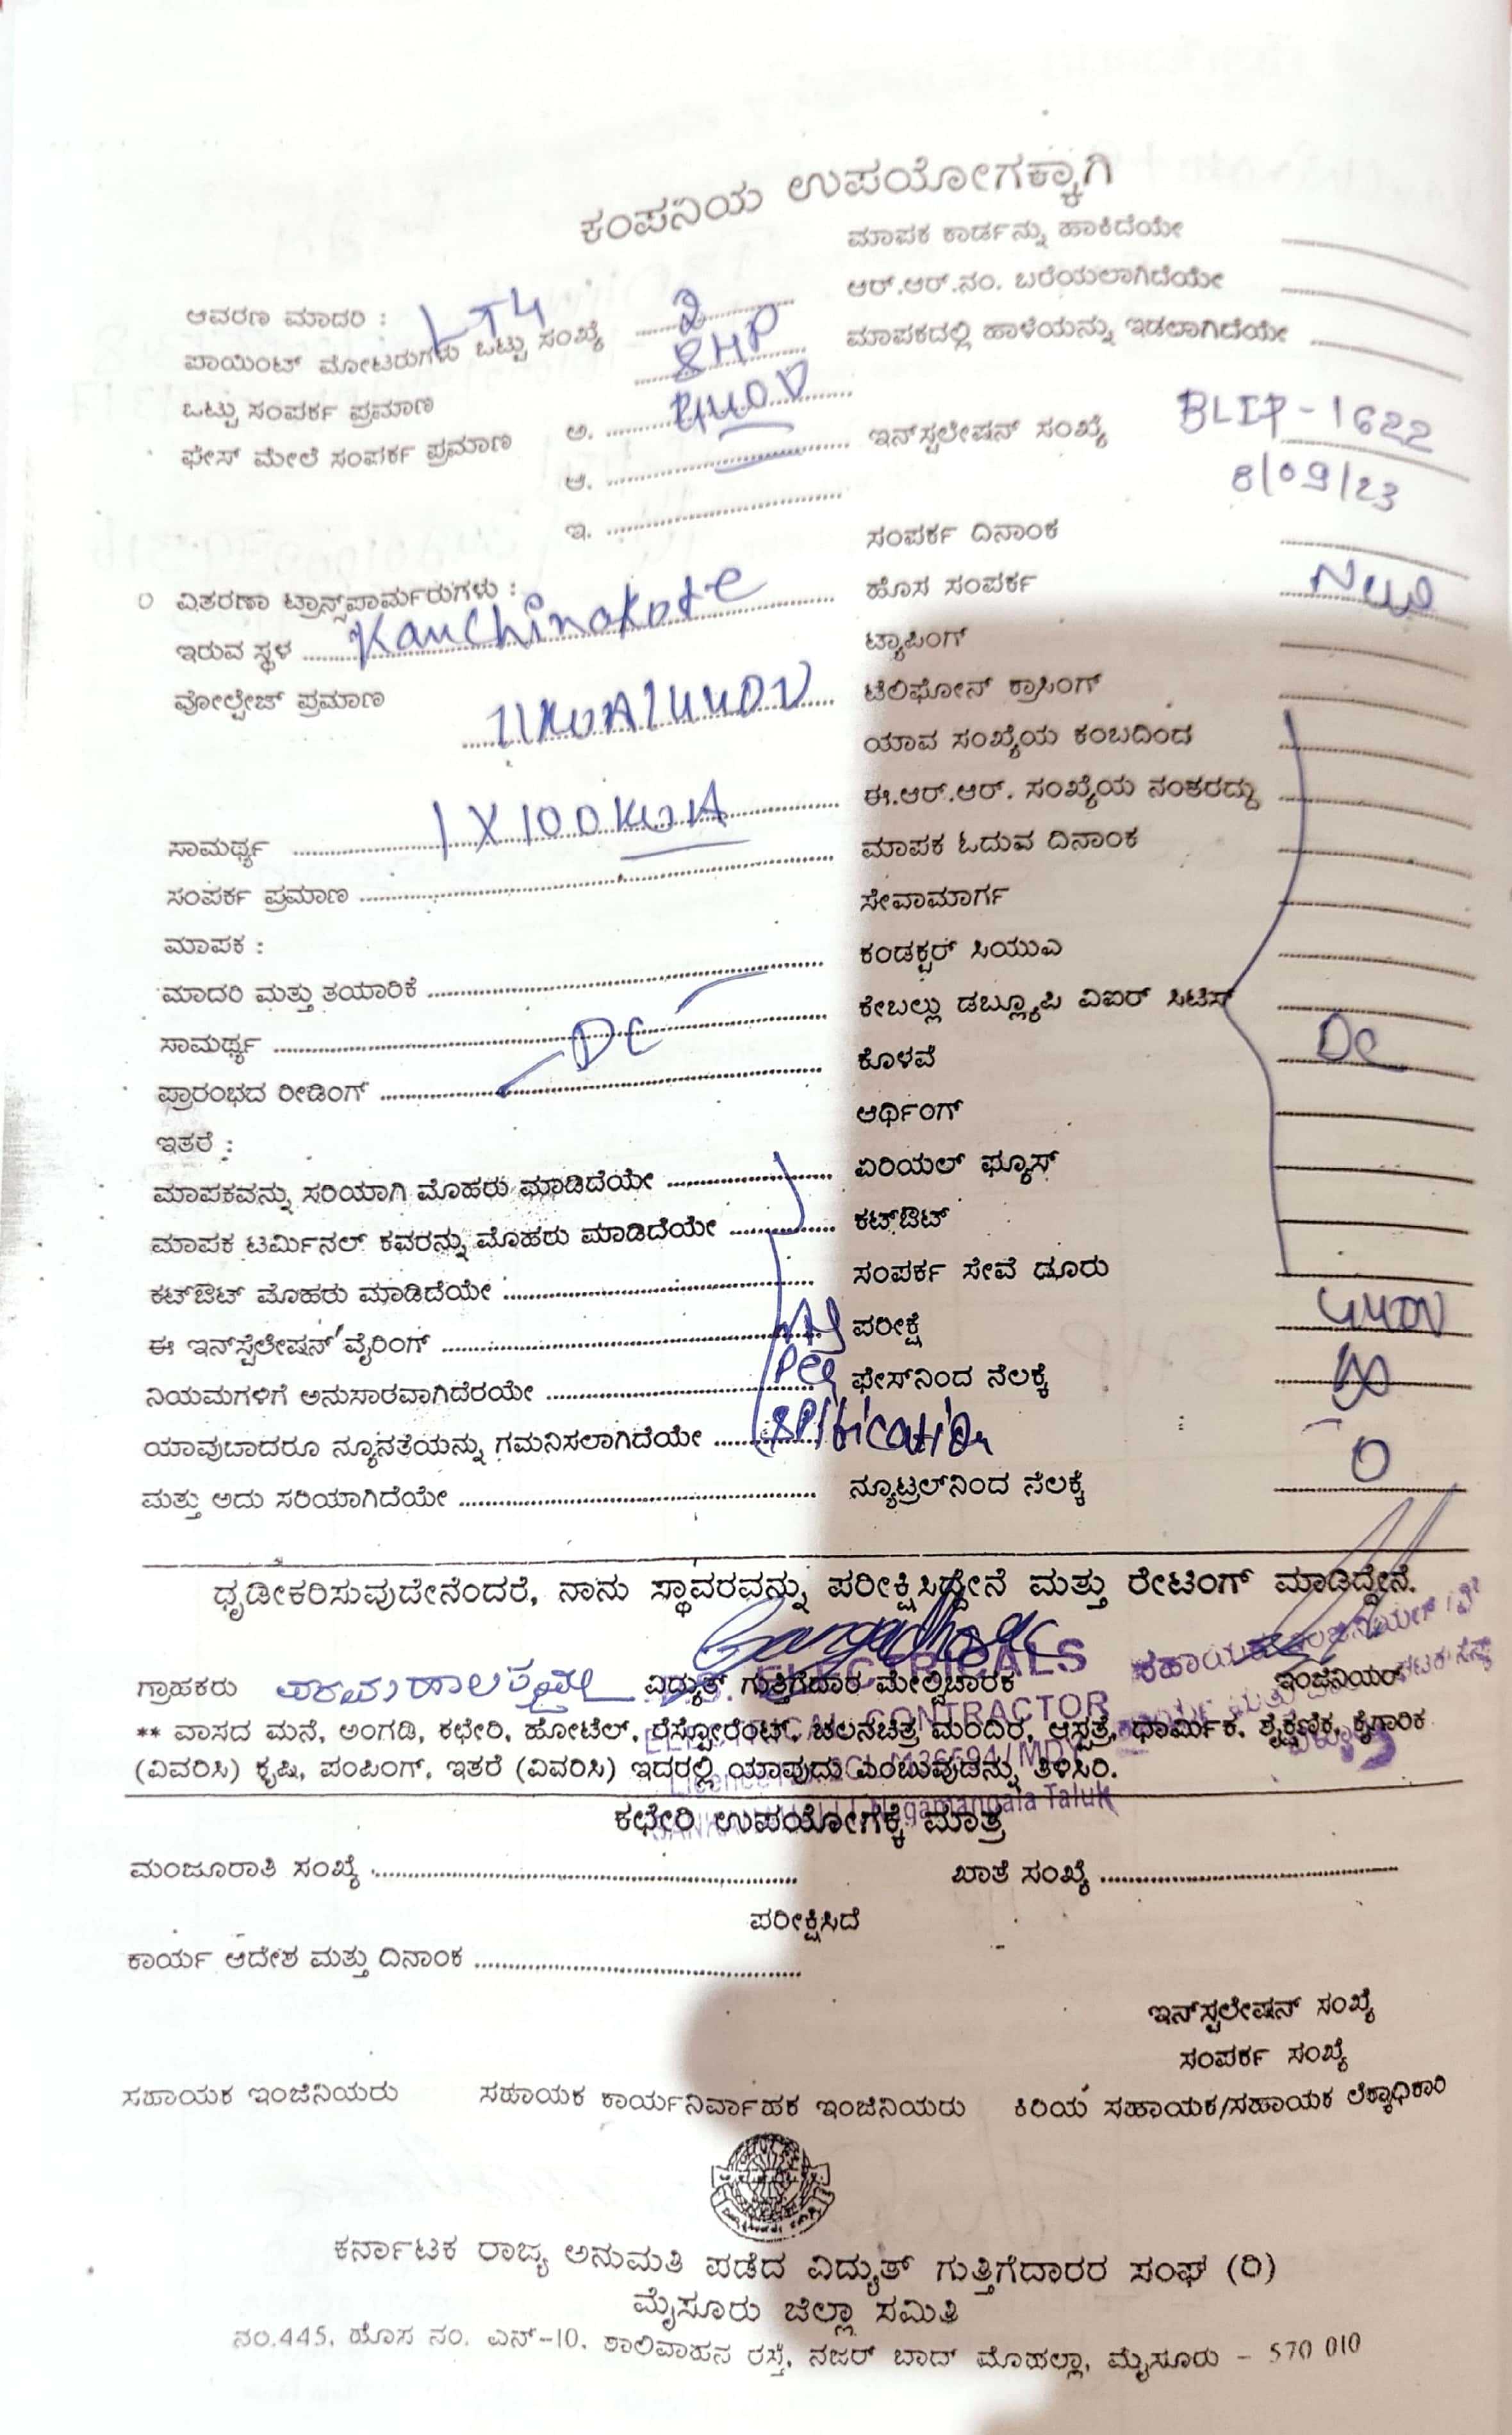 ಕಂಪನಿಯ ಉಪಯೋಗಕ್ಕಾಗಿ
ಆವರಣ ಮಾದರಿ : LT4
ಪಾಯಿಂಟ್ ಮೋಟರುಗಳು ಒಟ್ಟು ಸಂಖ್ಯೆ 2
ಒಟ್ಟು ಸಂಪರ್ಕ ಪ್ರಮಾಣ 8HP
ಫೇಸ್ ಮೇಲೆ ಸಂಪರ್ಕ ಪ್ರಮಾಣ ಅ.
ಆ.
ಇ.
೦ ವಿತರಣಾ ಟ್ರಾನ್ಸ್‌ಪಾರ್ಮರುಗಳು :
ಇರುವ ಸ್ಥಳ Kanchinakote
ವೋಲ್ಟೇಜ್ ಪ್ರಮಾಣ
ಸಾಮರ್ಥ್ಯ 1 X 100 KVA
ಸಂಪರ್ಕ ಪ್ರಮಾಣ
ಮಾಪಕ :
ಮಾದರಿ ಮತ್ತು ತಯಾರಿಕೆ
ಸಾಮರ್ಥ್ಯ DC
ಪ್ರಾರಂಭದ ರೀಡಿಂಗ್
ಇತರೆ :
ಮಾಪಕವನ್ನು ಸರಿಯಾಗಿ ಮೊಹರು ಮಾಡಿದೆಯೇ
ಮಾಪಕ ಟರ್ಮಿನಲ್ ಕವರನ್ನು ಮೊಹರು ಮಾಡಿದೆಯೇ
ಕಟ್‌ಔಟ್ ಮೊಹರು ಮಾಡಿದೆಯೇ
ಈ ಇನ್‌ಸ್ಟೆಲೇಷನ್ ವೈರಿಂಗ್ As
ನಿಯಮಗಳಿಗೆ ಅನುಸಾರವಾಗಿದೆರಯೇ per
ಯಾವುಬಾದರೂ ನ್ಯೂನತೆಯನ್ನು ಗಮನಿಸಲಾಗಿದೆಯೇ
ಮತ್ತು ಅದು ಸರಿಯಾಗಿದೆಯೇ
ಮಾಪಕ ಕಾರ್ಡನ್ನು ಹಾಕಿದೆಯೇ
ಆರ್.ಆರ್.ನಂ. ಬರೆಯಲಾಗಿದೆಯೇ
ಮಾಪಕದಲ್ಲಿ ಹಾಳೆಯನ್ನು ಇಡಲಾಗಿದೆಯೇ
ಇನ್‌ಸ್ಟಲೇಷನ್ ಸಂಖ್ಯೆ BLIP-1622
8/09/23
ಸಂಪರ್ಕ ದಿನಾಂಕ
ಹೊಸ ಸಂಪರ್ಕ New
ಟ್ಯಾಪಿಂಗ್
ಟೆಲಿಫೋನ್ ಕ್ರಾಸಿಂಗ್
ಯಾವ ಸಂಖ್ಯೆಯ ಕಂಬದಿಂದ
ಈ.ಆರ್.ಆರ್. ಸಂಖ್ಯೆಯ ನಂತರದ್ದು
ಮಾಪಕ ಓದುವ ದಿನಾಂಕ
ಸೇವಾಮಾರ್ಗ
ಕಂಡಕ್ಟರ್ ಸಿಯುಎ
ಕೇಬಲ್ಲು ಡಬ್ಲ್ಯೂಪಿ ವಿಐರ್ ಸಿಟಿಸ್
ಕೊಳವೆ DC
ಆರ್ಥಿಂಗ್
ಏರಿಯಲ್ ಫ್ಯೂಸ್
ಕಟ್‌ಔಟ್
ಸಂಪರ್ಕ ಸೇವೆ ದೂರು
ಪರೀಕ್ಷೆ 440V
ಫೇಸ್‌ನಿಂದ ನೆಲಕ್ಕೆ ∞
ನ್ಯೂಟ್ರಲ್‌ನಿಂದ ನೆಲಕ್ಕೆ 0
ಧೃಡೀಕರಿಸುವುದೇನೆಂದರೆ, ನಾನು ಸ್ಥಾವರವನ್ನು ಪರೀಕ್ಷಿಸಿದ್ದೇನೆ ಮತ್ತು ರೇಟಿಂಗ್ ಮಾಡಿದ್ದೇನೆ.
ಗ್ರಾಹಕರು ವಿದ್ಯುತ್ ಗುತ್ತಿಗೆದಾರ ಮೇಲ್ವಿಚಾರಕ ಇಂಜಿನಿಯರ್
** ವಾಸದ ಮನೆ, ಅಂಗಡಿ, ಕಛೇರಿ, ಹೋಟೆಲ್, ರೆಸ್ಟೋರೆಂಟ್, ಚಲನಚಿತ್ರ ಮಂದಿರ, ಆಸ್ಪತ್ರೆ, ಧಾರ್ಮಿಕ, ಶೈಕ್ಷಣಿಕ, ಕೈಗಾರಿಕ
(ವಿವರಿಸಿ) ಕೃಷಿ, ಪಂಪಿಂಗ್, ಇತರೆ (ವಿವರಿಸಿ) ಇದರಲ್ಲಿ ಯಾವುದು ಎಂಬುವುದನ್ನು ತಿಳಿಸಿರಿ.
ELECTRICALS
CONTRACTOR
Nagamangala Taluk
ಕಛೇರಿ ಉಪಯೋಗಕ್ಕೆ ಮಾತ್ರ
ಮಂಜೂರಾತಿ ಸಂಖ್ಯೆ ಖಾತೆ ಸಂಖ್ಯೆ
ಪರೀಕ್ಷಿಸಿದೆ
ಕಾರ್ಯ ಆದೇಶ ಮತ್ತು ದಿನಾಂಕ
ಇನ್‌ಸ್ಟಲೇಷನ್ ಸಂಖ್ಯೆ
ಸಂಪರ್ಕ ಸಂಖ್ಯೆ
ಸಹಾಯಕ ಇಂಜಿನಿಯರು ಸಹಾಯಕ ಕಾರ್ಯನಿರ್ವಾಹಕ ಇಂಜಿನಿಯರು ಕಿರಿಯ ಸಹಾಯಕ/ಸಹಾಯಕ ಲೆಕ್ಕಾಧಿಕಾರಿ
ಕರ್ನಾಟಕ ರಾಜ್ಯ ಅನುಮತಿ ಪಡೆದ ವಿದ್ಯುತ್ ಗುತ್ತಿಗೆದಾರರ ಸಂಘ (ರಿ)
ಮೈಸೂರು ಜಿಲ್ಲಾ ಸಮಿತಿ
ನಂ.445, ಹೊಸ ನಂ. ಎನ್-10, ಶಾಲಿವಾಹನ ರಸ್ತೆ, ನಜರ್ ಬಾದ್ ಮೊಹಲ್ಲಾ, ಮೈಸೂರು - 570 010